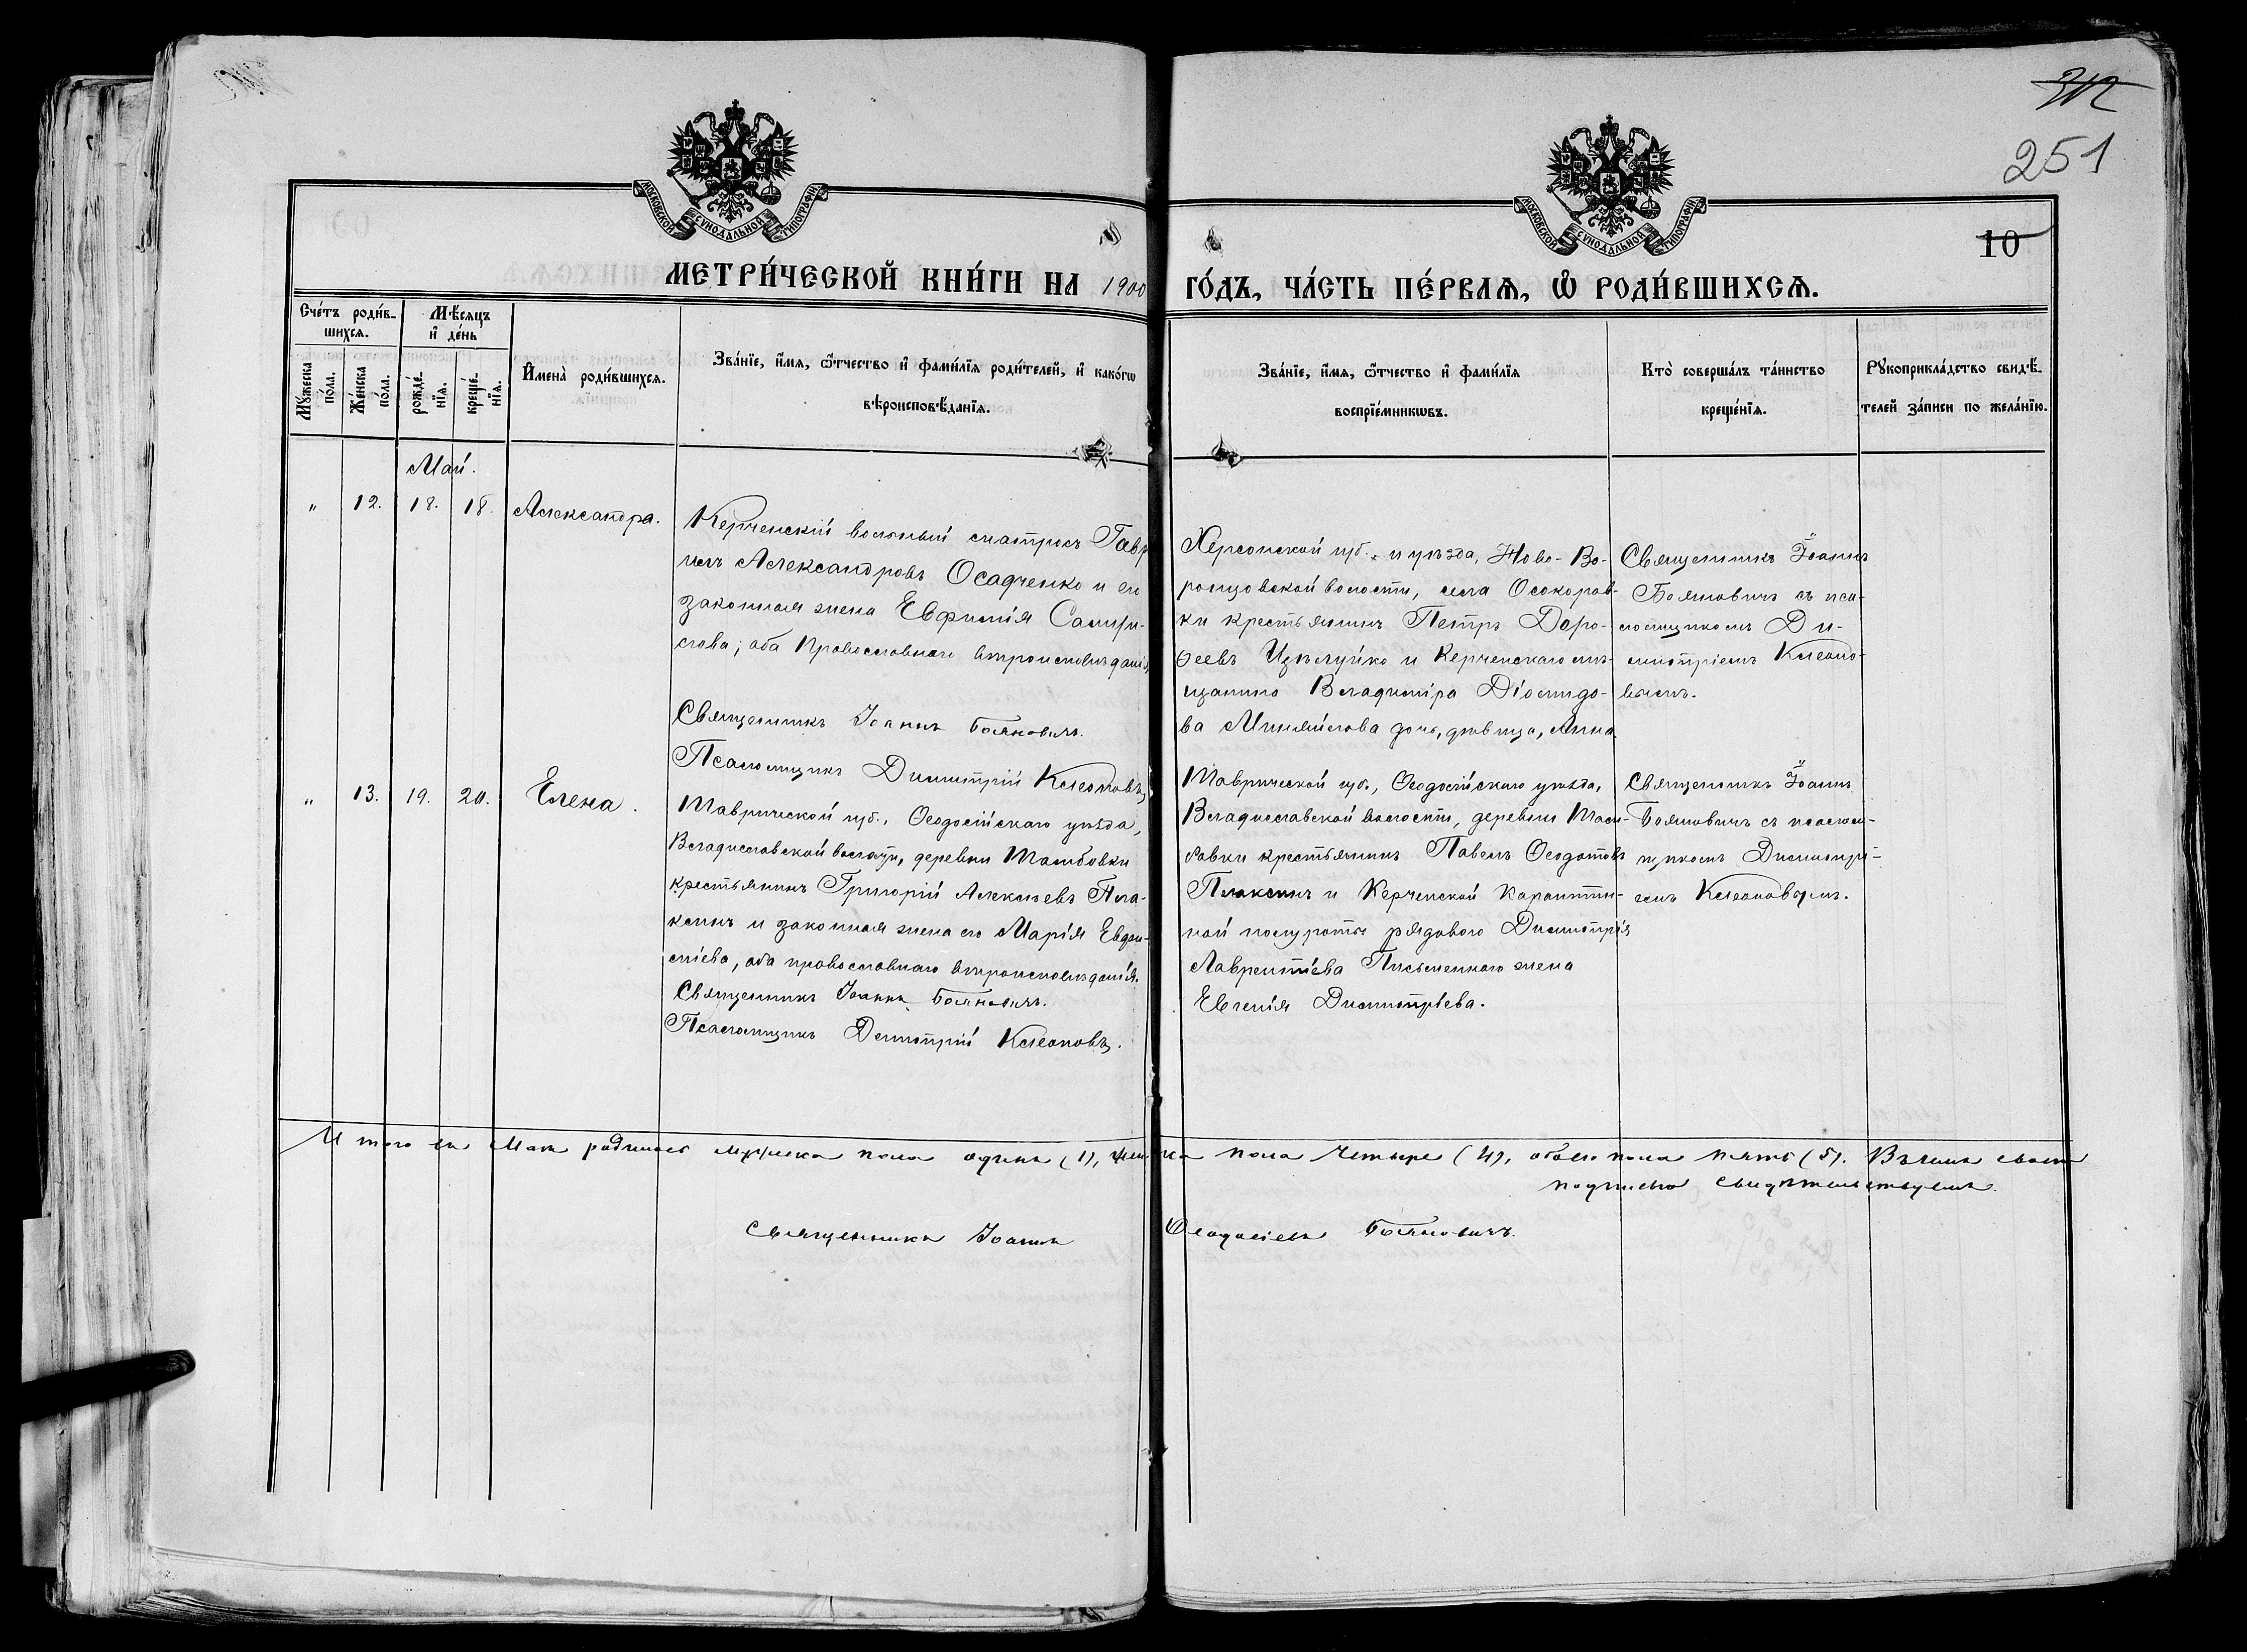 312
251
МОСКОВСКОЙ СѴНОДАЛЬНОЙ ТИПОГРАФІИ
МОСКОВСКОЙ СѴНОДАЛЬНОЙ ТИПОГРАФІИ
10
МЕТРИ́ЧЕСКОЙ КНИ́ГИ НА 1900 ГО́ДЪ, ЧА́СТЬ ПЕ́РВАѦ, Ѡ РОДИ́ВШИХСѦ.
Сче́тъ роди́в-
шихсѧ.
Мꙋ́жеска
по́ла.
Же́нска
по́ла.
Мѣ́сѧцъ
и҆ де́нь
рожде́-
нїѧ.
креще́-
нїѧ.
И҆мена̀ роди́вшихсѧ.
Зва́нїе, и҆́мѧ, ѻ҆́тчество и҆ фами́лїѧ роди́телей, и҆ како́гѡ
вѣроисповѣ́данїѧ.
Зва́нїе, и҆́мѧ, ѻ҆́тчество и҆ фами́лїѧ
воспрїе́мникѡвъ.
Кто̀ соверша́лъ та́инство
креще́нїѧ.
Рꙋкоприкла́дство свидѣ́-
телей за́писи по жела́нїю.
Май.
" 12. 18. 18. Александра.
Керченскій вольный матросъ Гавр
илъ Александровъ Осадченко и его
законная жена Евфимія Самуи-
лова; оба Православнаго вѣроисповѣданія
Священникъ Іоаннъ Бояновичъ.
Псаломщикъ Димитрій Клеоповъ
Херсонской губ. и уѣзда, Ново-Во-
ронцовской волости, села Осокоров-
ки крестьянинъ Петръ Доро-
ѳеевъ Цѣлуйко и Керченскаго мѣ-
щанина Владиміра Діомидо-
ва Миняйлова дочь, дѣвица, Анна.
Священникъ Іоаннъ
Бояновичъ съ пса-
ломщикомъ Ди-
митріемъ Клеопо-
вымъ.
" 13. 19. 20. Елена.
Таврической губ., Ѳеодосійскаго уѣзда,
Владиславской волости, деревни Тамбовки
крестьянинъ Григорій Алексѣевъ Пла-
ксинъ и законная жена его Марія Евдо-
кіева, оба православнаго вѣроисповѣданія.
Священникъ Іоаннъ Бояновичъ.
Псаломщикъ Димитрій Клеоповъ.
Таврической губ., Ѳеодосійскаго уѣзда,
Владиславской волости, деревни Там-
бовки крестьянинъ Павелъ Ѳеодотовъ
Плаксинъ и Керченской карантин-
ной полуроты рядового Димитрія
Лаврентіева Письменнаго жена
Евгенія Димитріева.
Священникъ Іоаннъ
Бояновичъ съ псалом-
щикомъ Димитрі-
емъ Клеоповымъ.
Итого въ Маѣ родилось мужеска пола одинъ (1), женска пола четыре (4), обоего пола пять (5). Въ чемъ своею
подписью свидѣтельствуемъ.
Священникъ Іоаннъ Ѳеодосіевъ Бояновичъ.